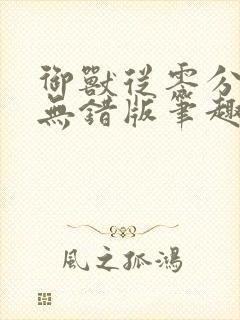 御獸從零分
無錯版筆趣
風之孤鴻